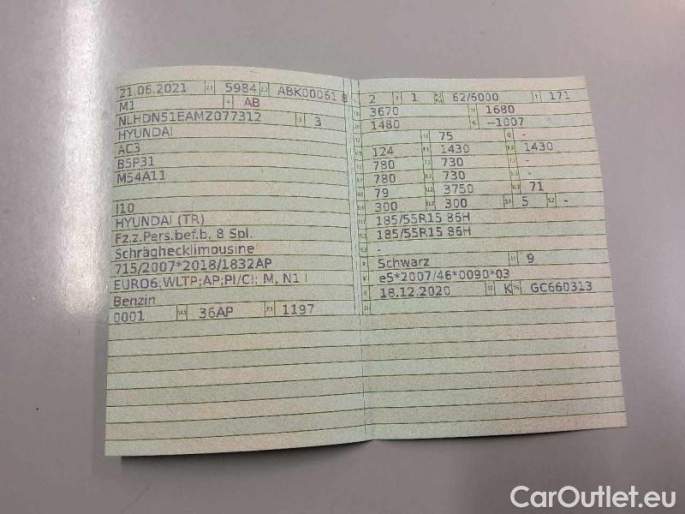 21.06.2021 5984 ABK00061 8
M1 AB
NLHDN51EAMZ077312 3
HYUNDAI
AC3
B5P31
M54A11
I10
HYUNDAI (TR)
Fz.z.Pers.bef.b. 8 Spl.
Schräghecklimousine
715/2007*2018/1832AP
EURO6;WLTP;AP;PI/CI; M, N1 I
Benzin
0001 36AP 1197
2 1 62/6000 171
3670 1680
1480 —1007
75 -
124 1430 1430
780 730 -
780 730 -
79 3750 71
300 300 5 -
185/55R15 86H
185/55R15 86H
-
Schwarz 9
e5*2007/46*0090*03
18.12.2020 K GC660313
CarOutlet.eu